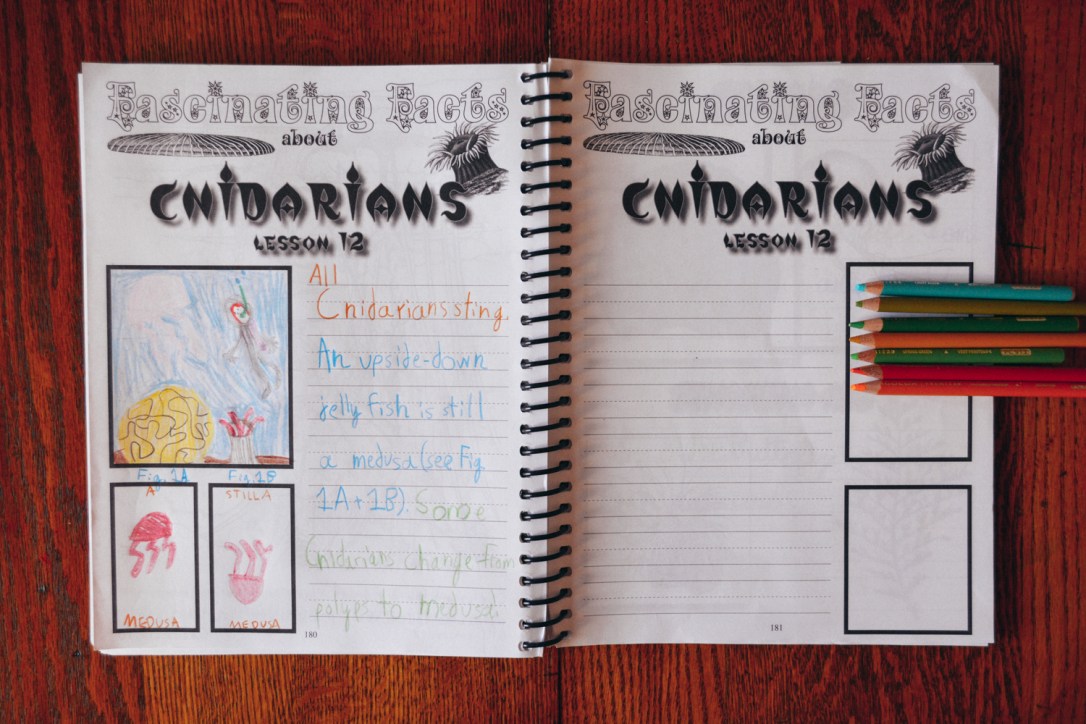 Fascinating Facts
about
CNIDARIANS
LESSON 12
All
Cnidarians sting.
An upside-down
jelly fish is still
a medusa (see Fig
1A + 1B). Some
Cnidarians change from
polyps to medusa.
Fig. 1A
Fig. 1B
A
MEDUSA
STILL A
MEDUSA
180
Fascinating Facts
about
CNIDARIANS
LESSON 12
181